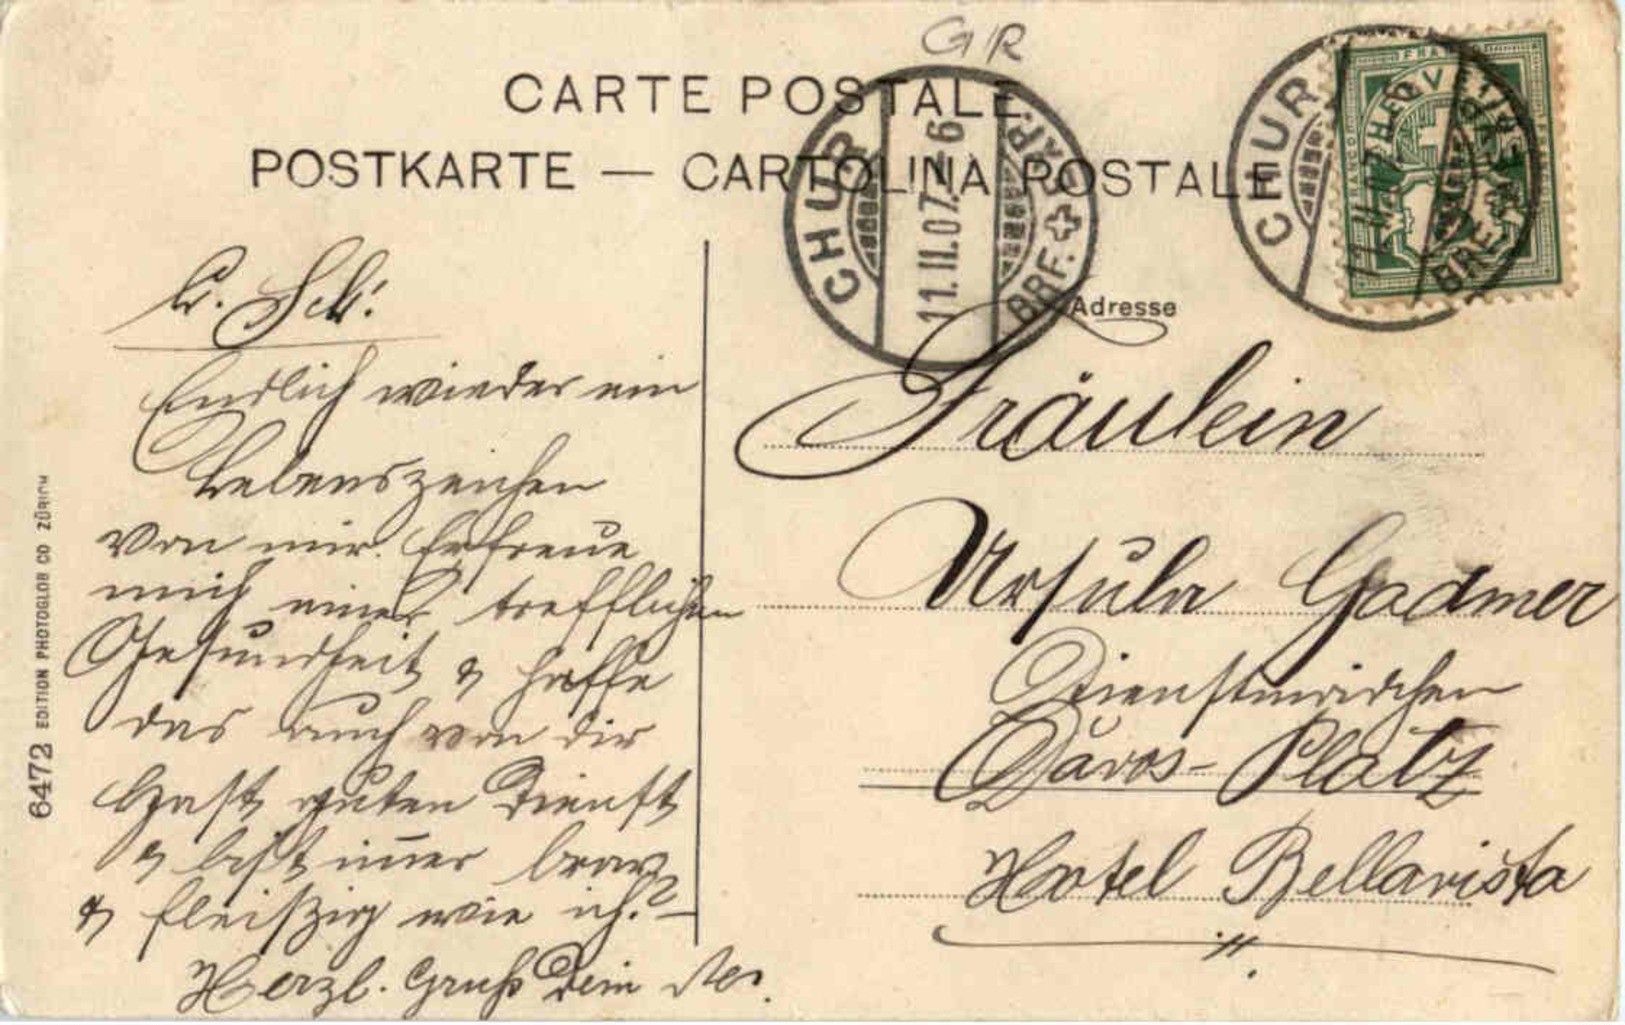 GR
CARTE POSTALE
POSTKARTE — CARTOLINA POSTALE
CHUR
11.II.07. 6
BRF.
CHUR
11.II.07.
HELVETIA
FRANCO
Adresse
L. Sch!
Endlich wieder ein
Lebenszeichen
von mir. Erfreue
mich einer trefflichen
Gesundheit & hoffe
das auch von dir
Hast guten Dienst
& bist im̅er brav
& fleißig wie ich?
Herzl. Gruß Dein
Fräulein
Ursula Gadmer
Dienstmädchen
Davos-Platz
Hotel Bellavista
6472 EDITION PHOTOGLOB CO ZÜRICH